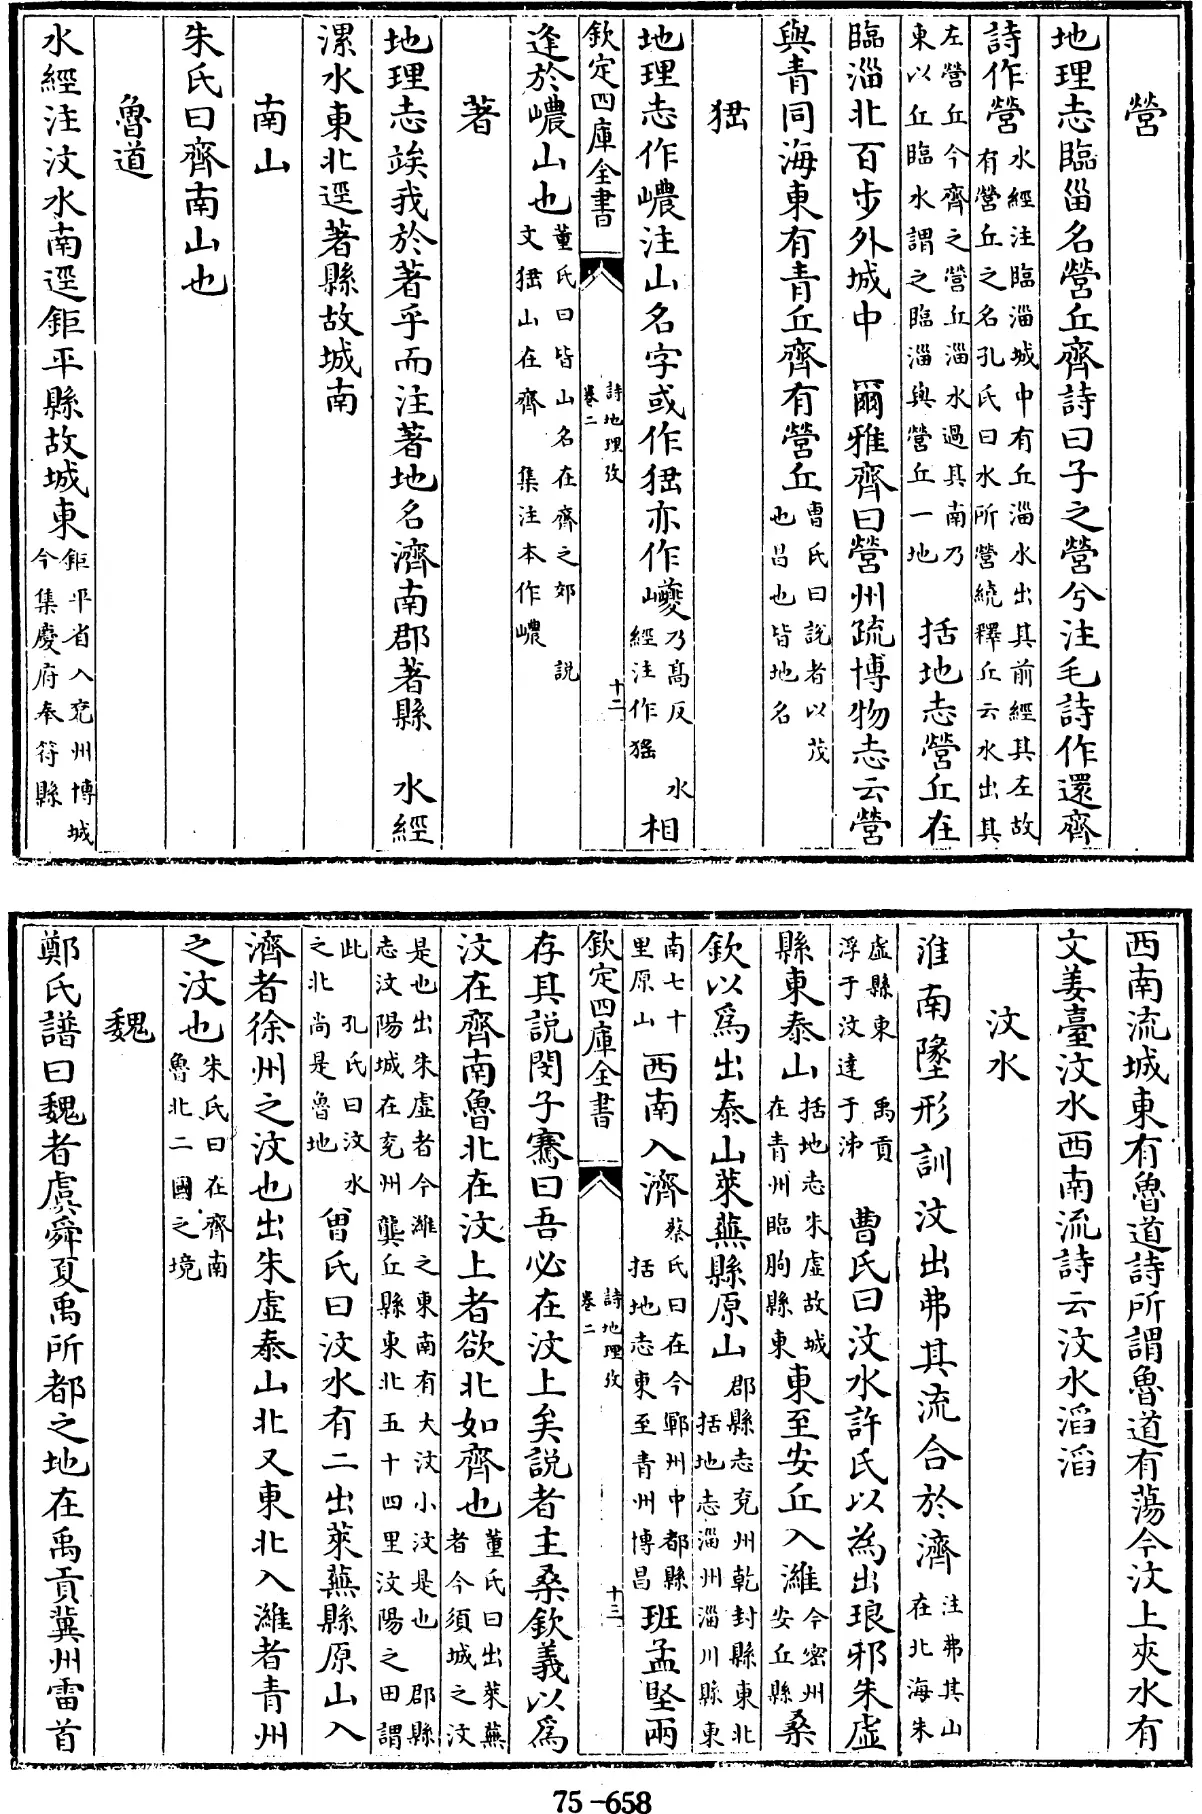 營
地理志臨甾名營丘齊詩曰子之營兮注毛詩作還齊
詩作營水經注臨淄城中有丘淄水出其前經其左故有營丘之名孔氏曰水所營繞釋丘云水出其
左營丘今齊之營丘淄水過其南乃東以丘臨水謂之臨淄與營丘一地 括地志營丘在
臨淄北百步外城中 爾雅齊曰營州疏博物志云營
與青同海東有青丘齊有營丘曹氏曰説者以茂也昌也皆地名
峱
地理志作㟎注山名字或作峱亦作巙乃髙反 水經注作猺 相
欽定四庫全書 詩地理攷 卷二 十二
逢於㟎山也董氏曰皆山名在齊之郊 説文峱山在齊 集注本作㟎
著
地理志竢我於著乎而注著地名濟南郡著縣 水經
漯水東北逕著縣故城南
南山
朱氏曰齊南山也
魯道
水經注汶水南逕鉅平縣故城東鉅平省入兖州博城今集慶府奉符縣
西南流城東有魯道詩所謂魯道有蕩今汶上夾水有
文姜臺汶水西南流詩云汶水滔滔
汶水
淮南墬形訓汶出弗其流合於濟注弗其山在北海朱
虛縣東 禹貢浮于汶達于沛 曹氏曰汶水許氏以為出琅邪朱虛
縣東泰山括地志朱虛故城在青州臨朐縣東東至安丘入濰今密州安丘縣桑
欽以為出泰山萊蕪縣原山郡縣志兖州乾封縣東北 括地志淄州淄川縣東
南七十里原山 西南入濟蔡氏曰在今鄆州中都縣 括地志東至青州博昌 班孟堅兩
欽定四庫全書 詩地理攷 卷二 十三
存其説閔子騫曰吾必在汶上矣説者主桑欽義以為
汶在齊南魯北在汶上者欲北如齊也董氏曰出萊蕪者今須城之汶
是也出朱虛者今濰之東南有大汶小汶是也 郡縣志汶陽城在兖州龔丘縣東北五十四里汶陽之田謂
此 孔氏曰汶水之北尚是魯地 曾氏曰汶水有二出萊蕪縣原山入
濟者徐州之汶也出朱虛泰山北又東北入濰者青州
之汶也朱氏曰在齊南魯北二國之境
魏
鄭氏譜曰魏者虞舜夏禹所都之地在禹貢冀州雷首
75-658